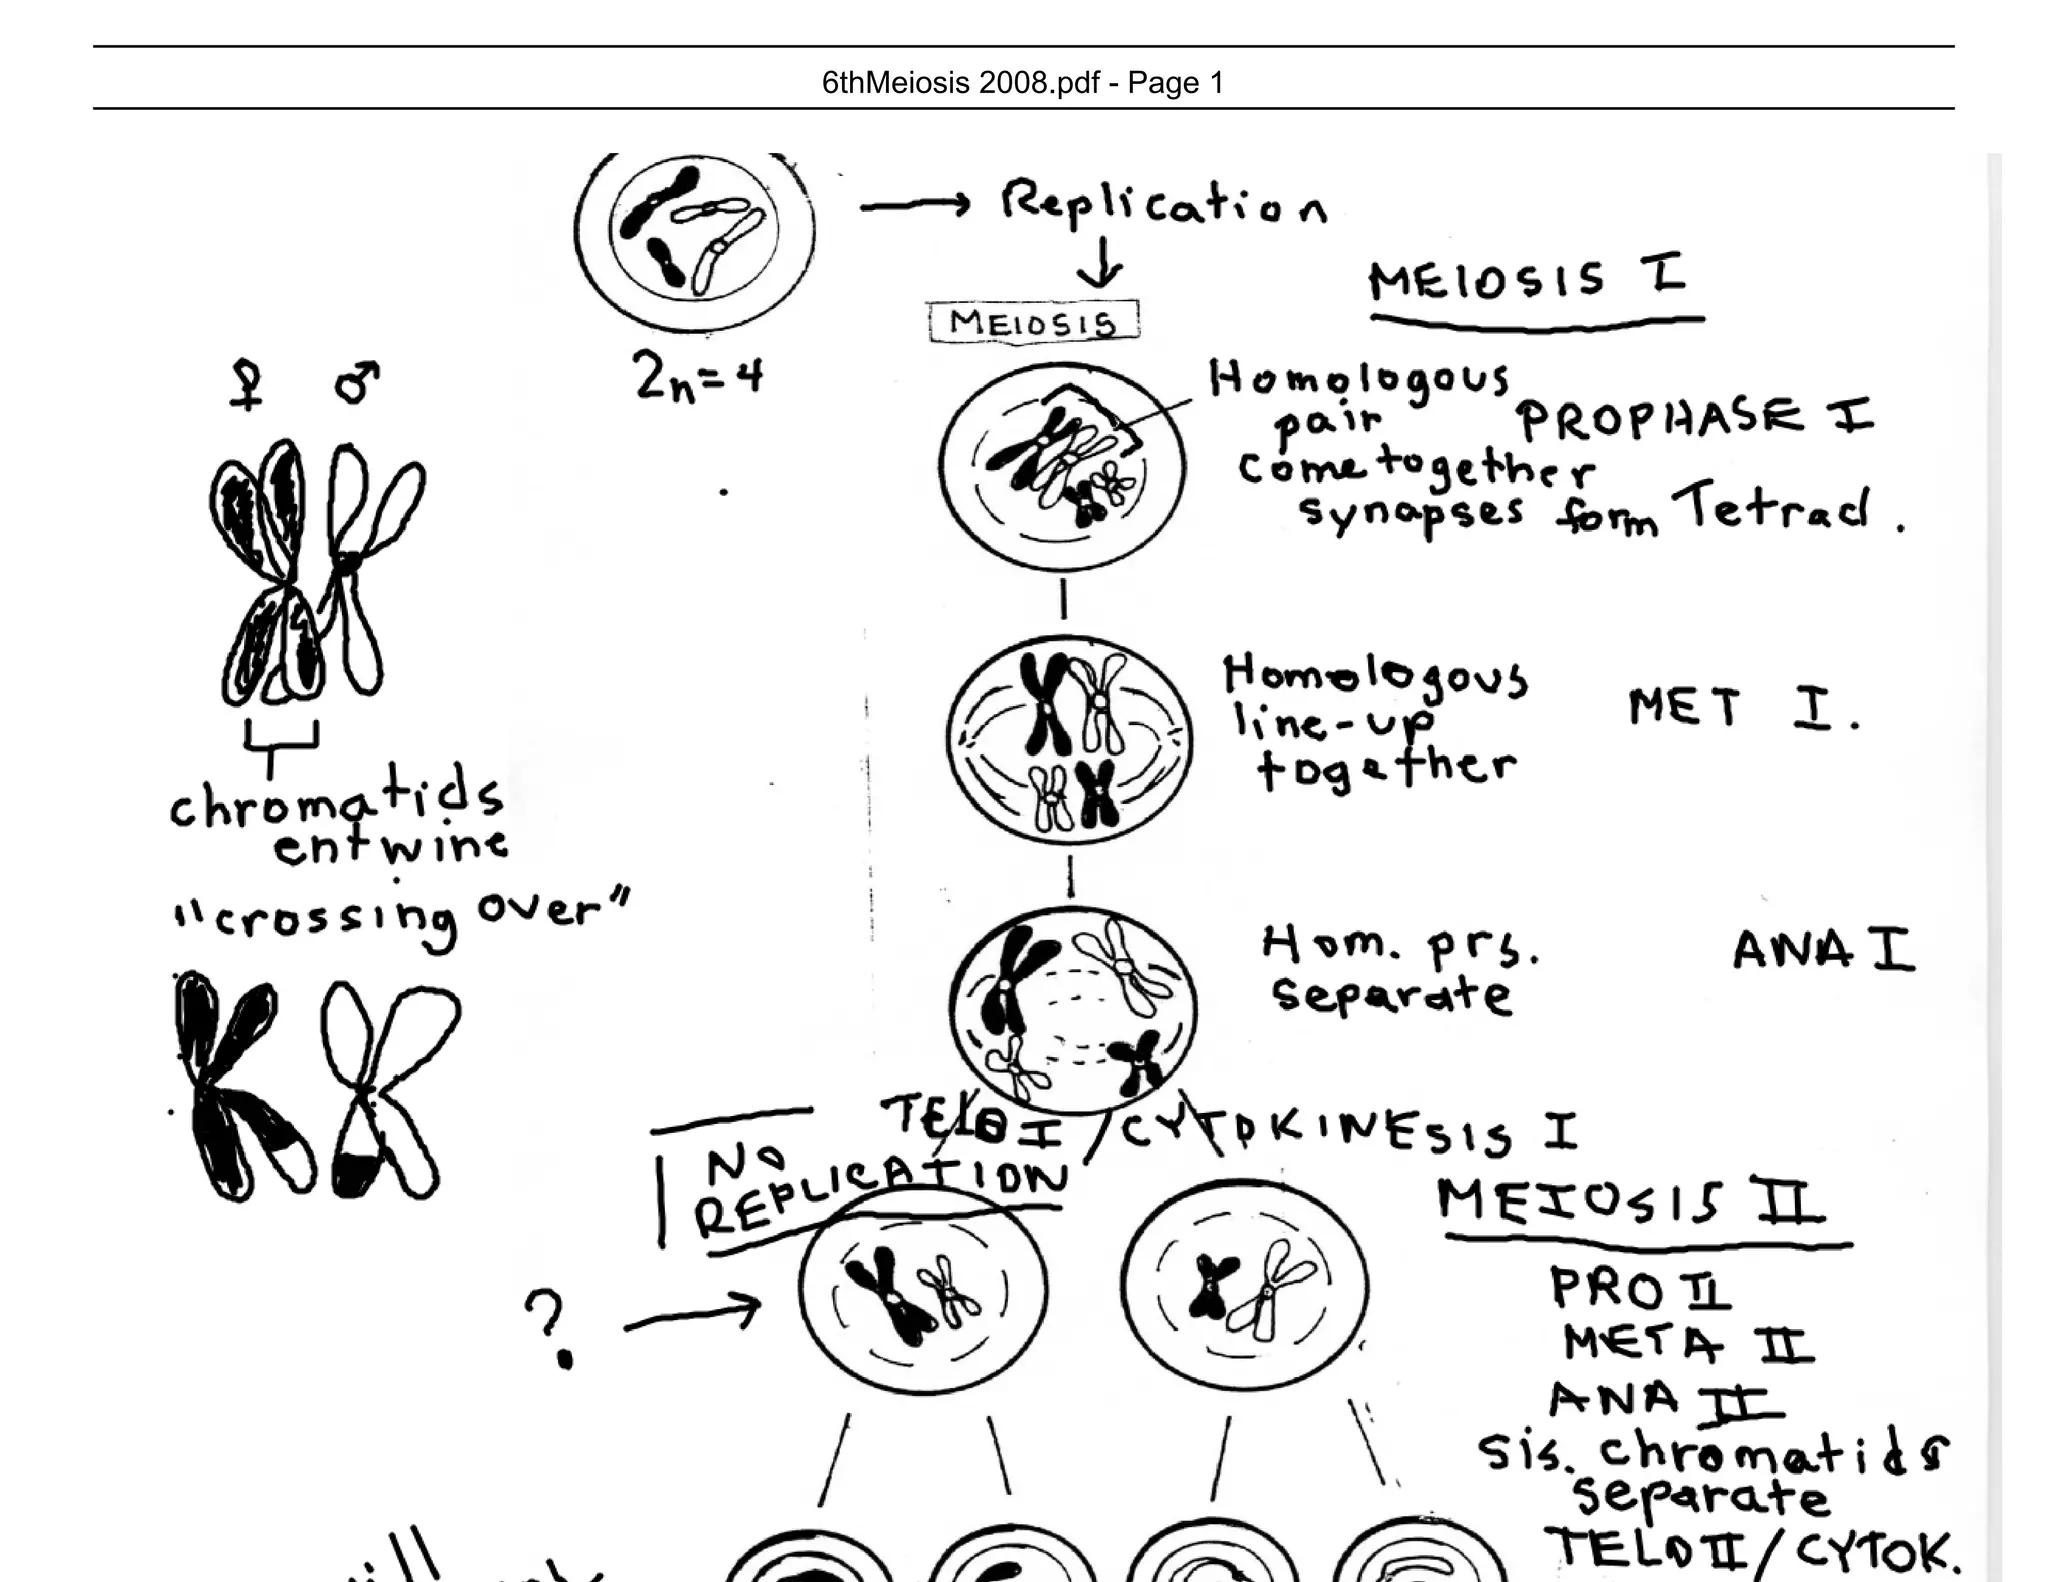 6thMeiosis 2008.pdf - Page 1
→ Replication
↓
MEIOSIS I
MEIOSIS
2n=4
♀ ♂
Homologous
pair
PROPHASE I
come together
synapses form Tetrad.
Homologous
line-up
together
MET I.
chromatids
entwine
"crossing over"
Hom. prs.
separate
ANA I
TELO I / CYTOKINESIS I
NO
REPLICATION
MEIOSIS II
? →
PRO II
META II
ANA II
sis. chromatids
separate
TELO II / CYTOK.